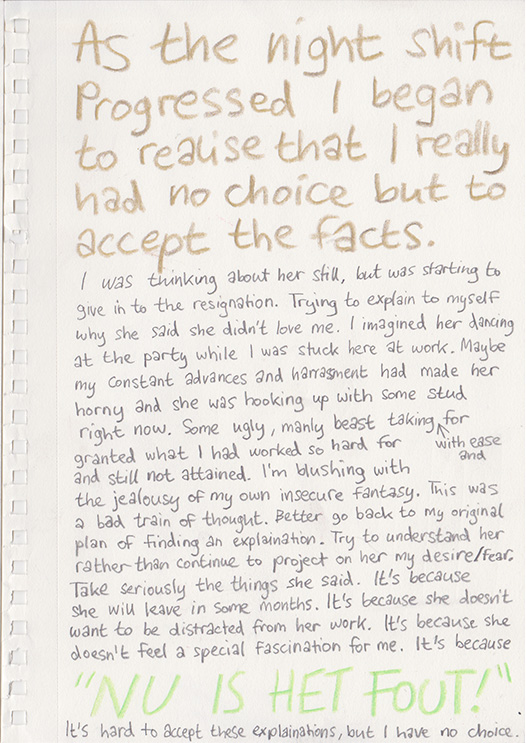 As the night shift
Progressed I began
to realise that I really
had no choice but to
accept the facts.
I was thinking about her still, but was starting to
give in to the resignation. Trying to explain to myself
why she said she didn't love me. I imagined her dancing
at the party while I was stuck here at work. Maybe
my constant advances and harrasment had made her
horny and she was hooking up with some stud
right now. Some ugly, manly beast taking for
granted what I had worked so hard for
with ease
and
and still not attained. I'm blushing with
the jealousy of my own insecure fantasy. This was
a bad train of thought. Better go back to my original
plan of finding an explaination. Try to understand her
rather than continue to project on her my desire/fear.
Take seriously the things she said. It's because
she will leave in some months. It's because she doesn't
want to be distracted from her work. It's because she
doesn't feel a special fascination for me. It's because
"NU IS HET FOUT!"
It's hard to accept these explainations, but I have no choice.